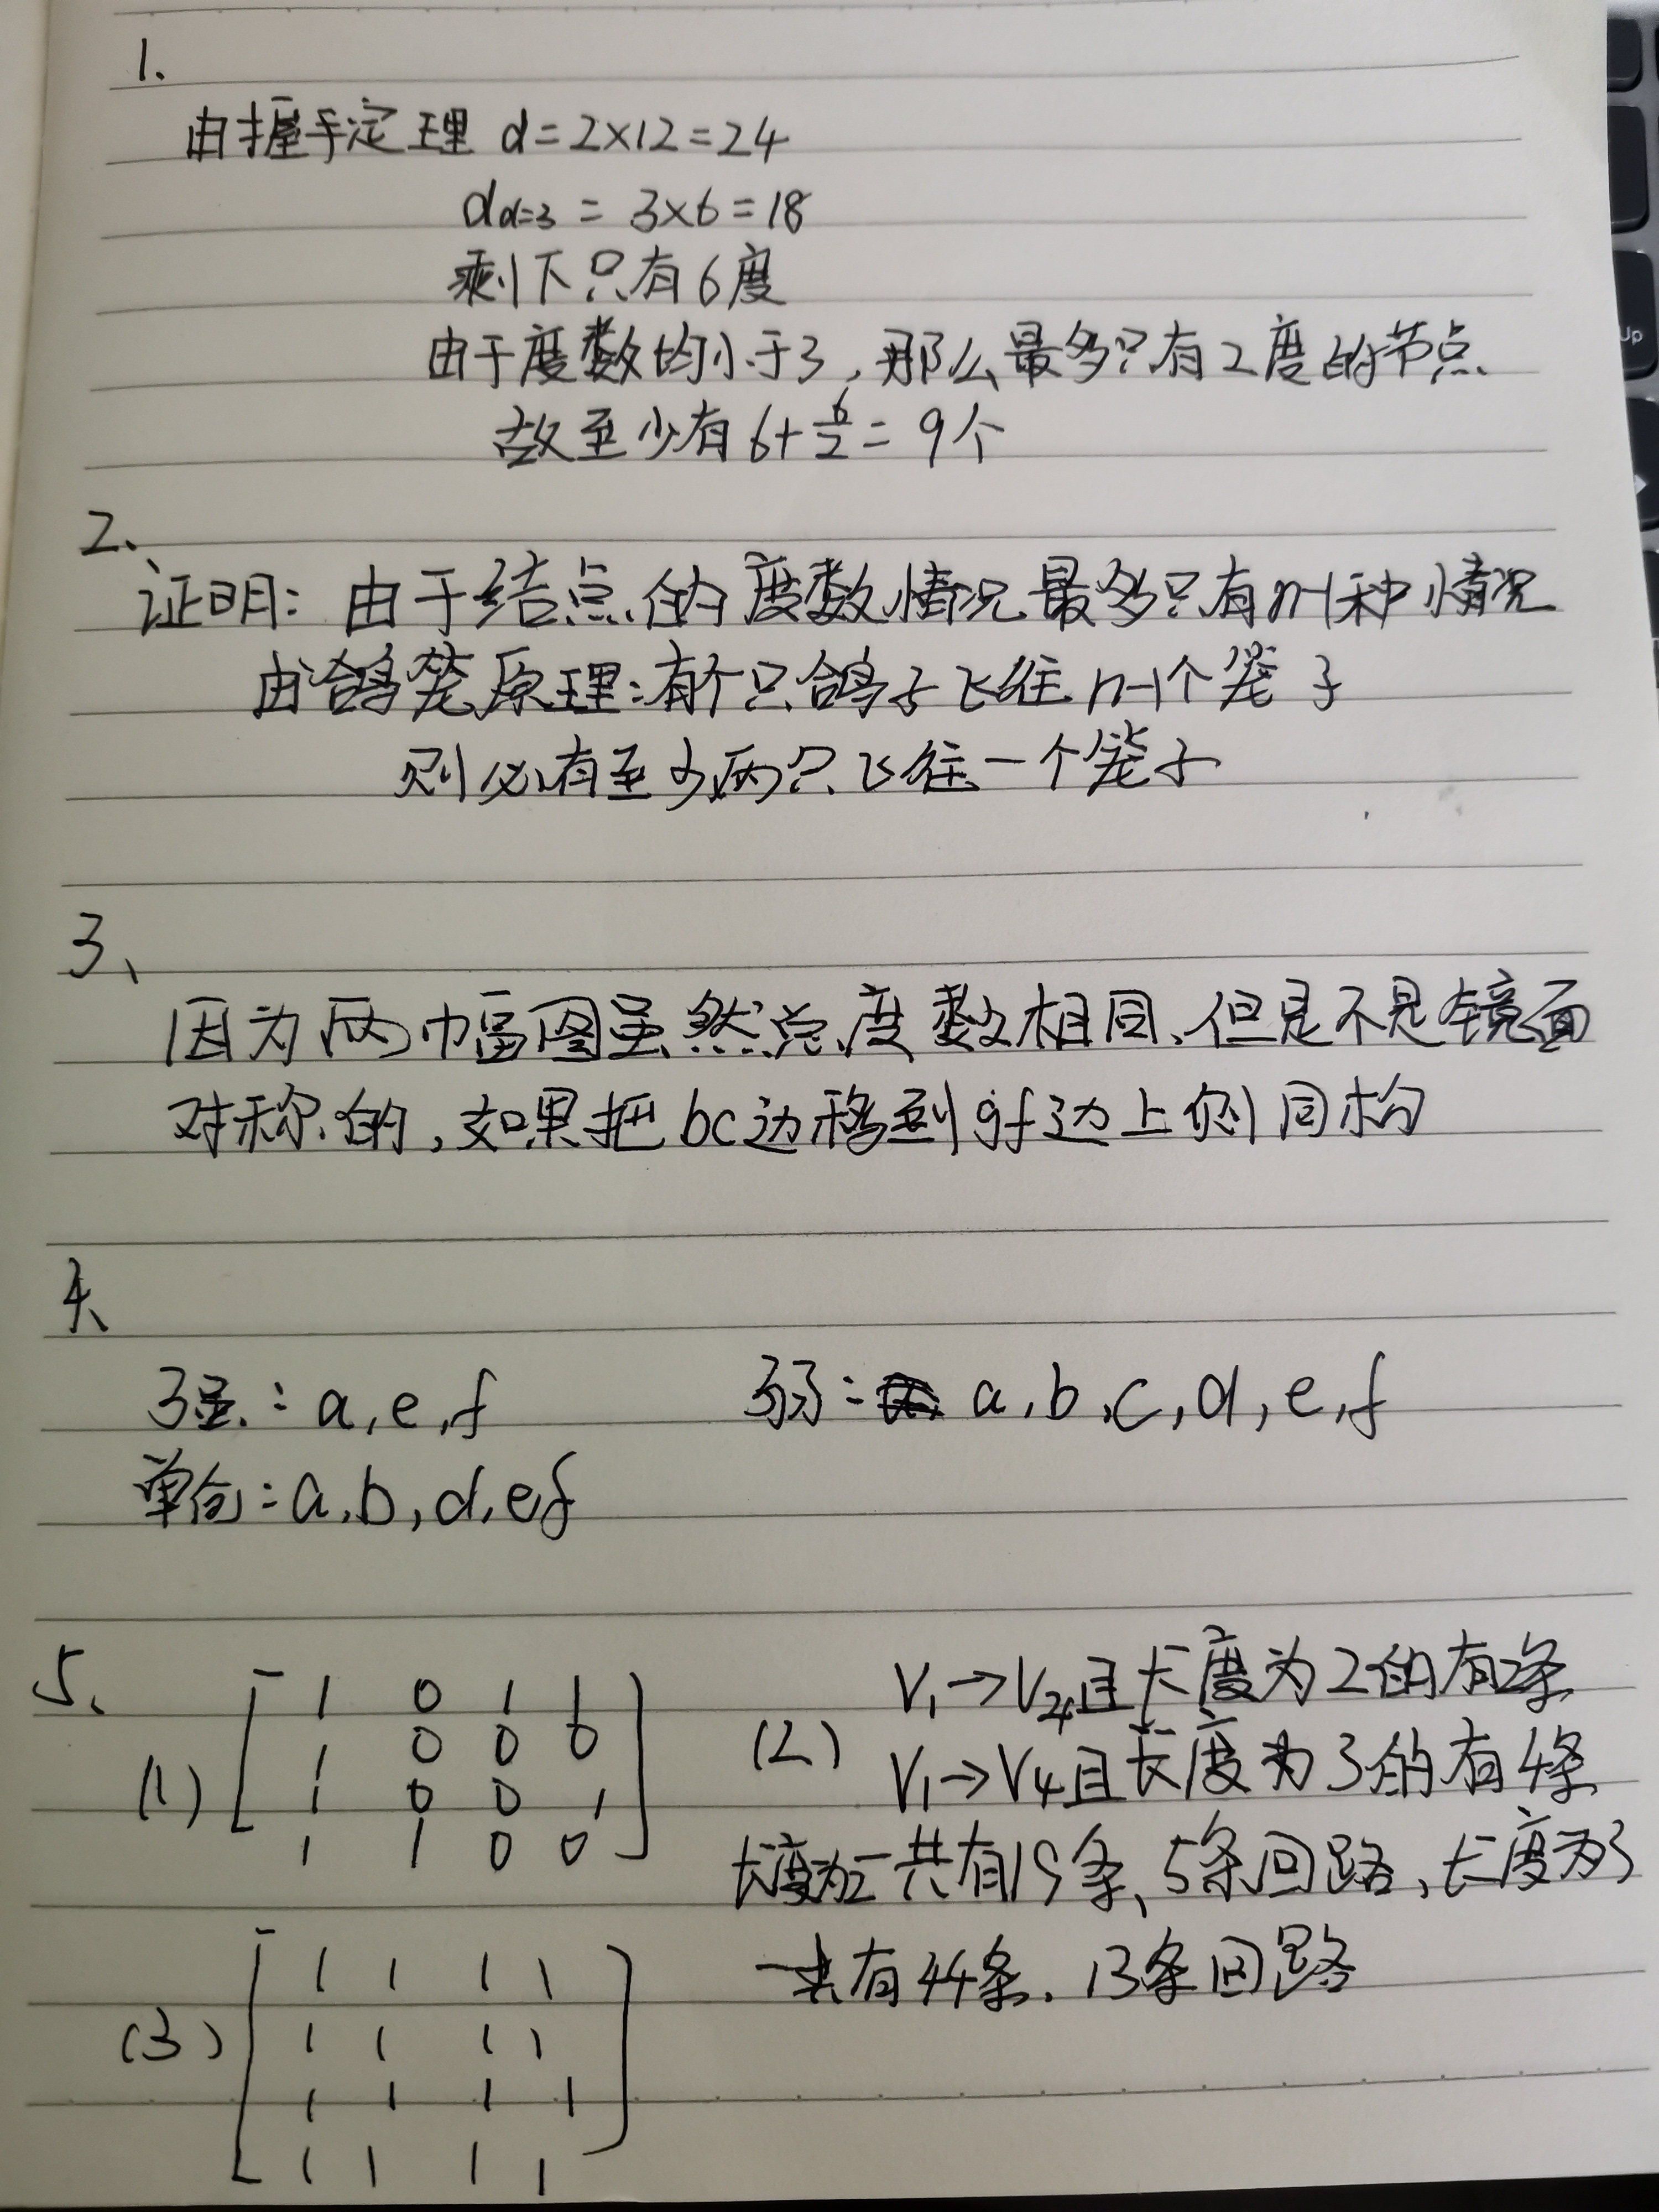 1.
由握手定理 d=2×12=24
d_{d=3} = 3×6=18
剩下只有6度
由于度数均小于3,那么最多只有2度的节点
故至少有6+6/2=9个
2、
证明:由于结点的度数情况最多只有n-1种情况
由鸽笼原理:有n只鸽子飞往n-1个笼子
则必有至少两只飞往一个笼子
3、
因为两幅图虽然总度数相同,但是不是镜面
对称的,如果把bc边移到gf边上则同构
4、
强:a,e,f 弱: a,b,c,d,e,f
单向:a,b,d,e,f
5、
(1)
1 0 1 1
1 0 0 0
1 0 0 1
1 1 0 0
(2) V1→V4且长度为2的有2条
V1→V4且长度为3的有4条
长度为2一共有19条、5条回路,长度为3
一共有44条、13条回路
(3)
1 1 1 1
1 1 1 1
1 1 1 1
1 1 1 1
Up